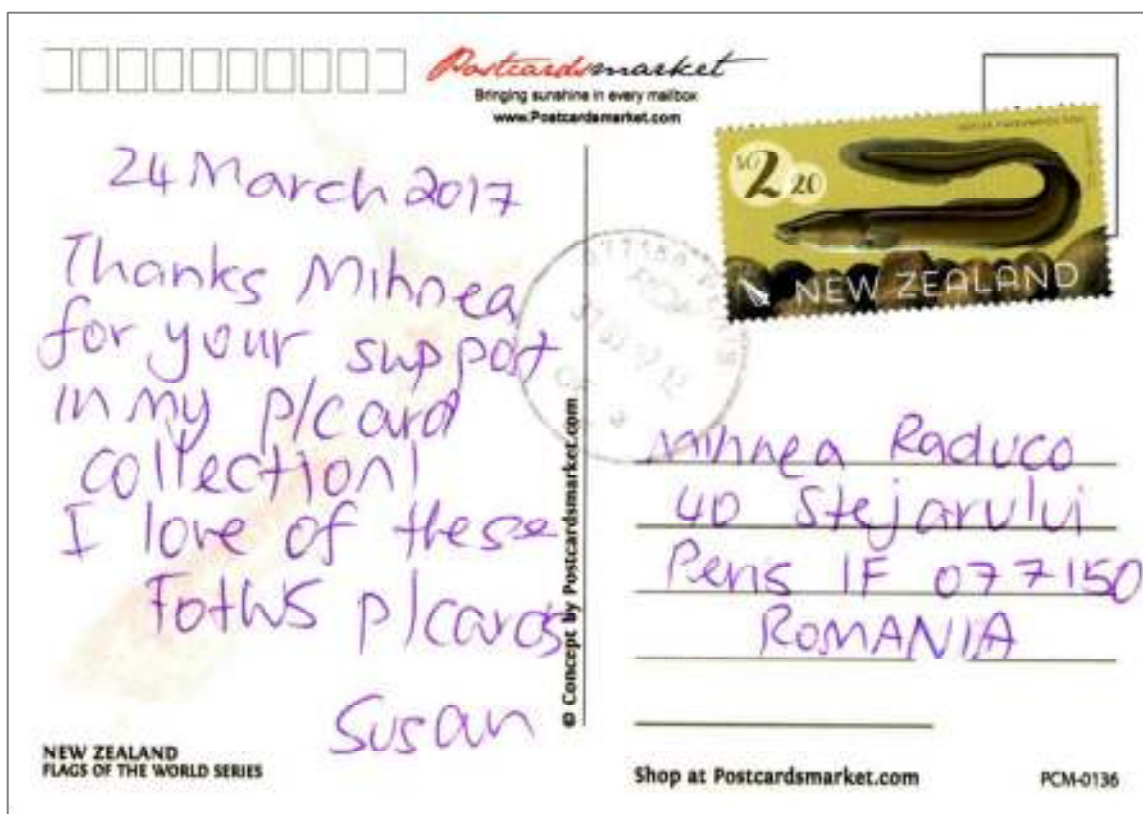 Postcardsmarket
Bringing sunshine in every mailbox
www.Postcardsmarket.com
$2.20
NEW ZEALAND
24 March 2017
Thanks Mihnea
for your support
in my p/card
collection!
I love of these
FotWS p/cards
Susan
© Concept by Postcardsmarket.com
Mihnea Raduco
40 Stejarului
Peris IF 077150
ROMANIA
NEW ZEALAND
FLAGS OF THE WORLD SERIES
Shop at Postcardsmarket.com
PCM-0136